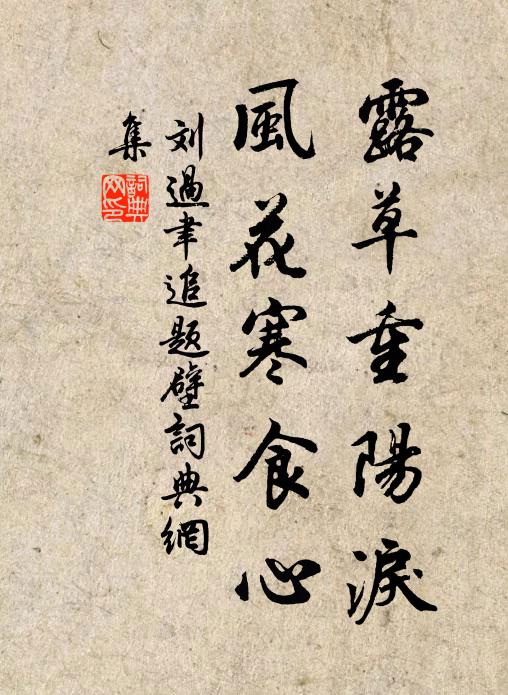 露草重陽淚
風花寒食心
刘過聿追題壁詞典網
集
詞典
网印